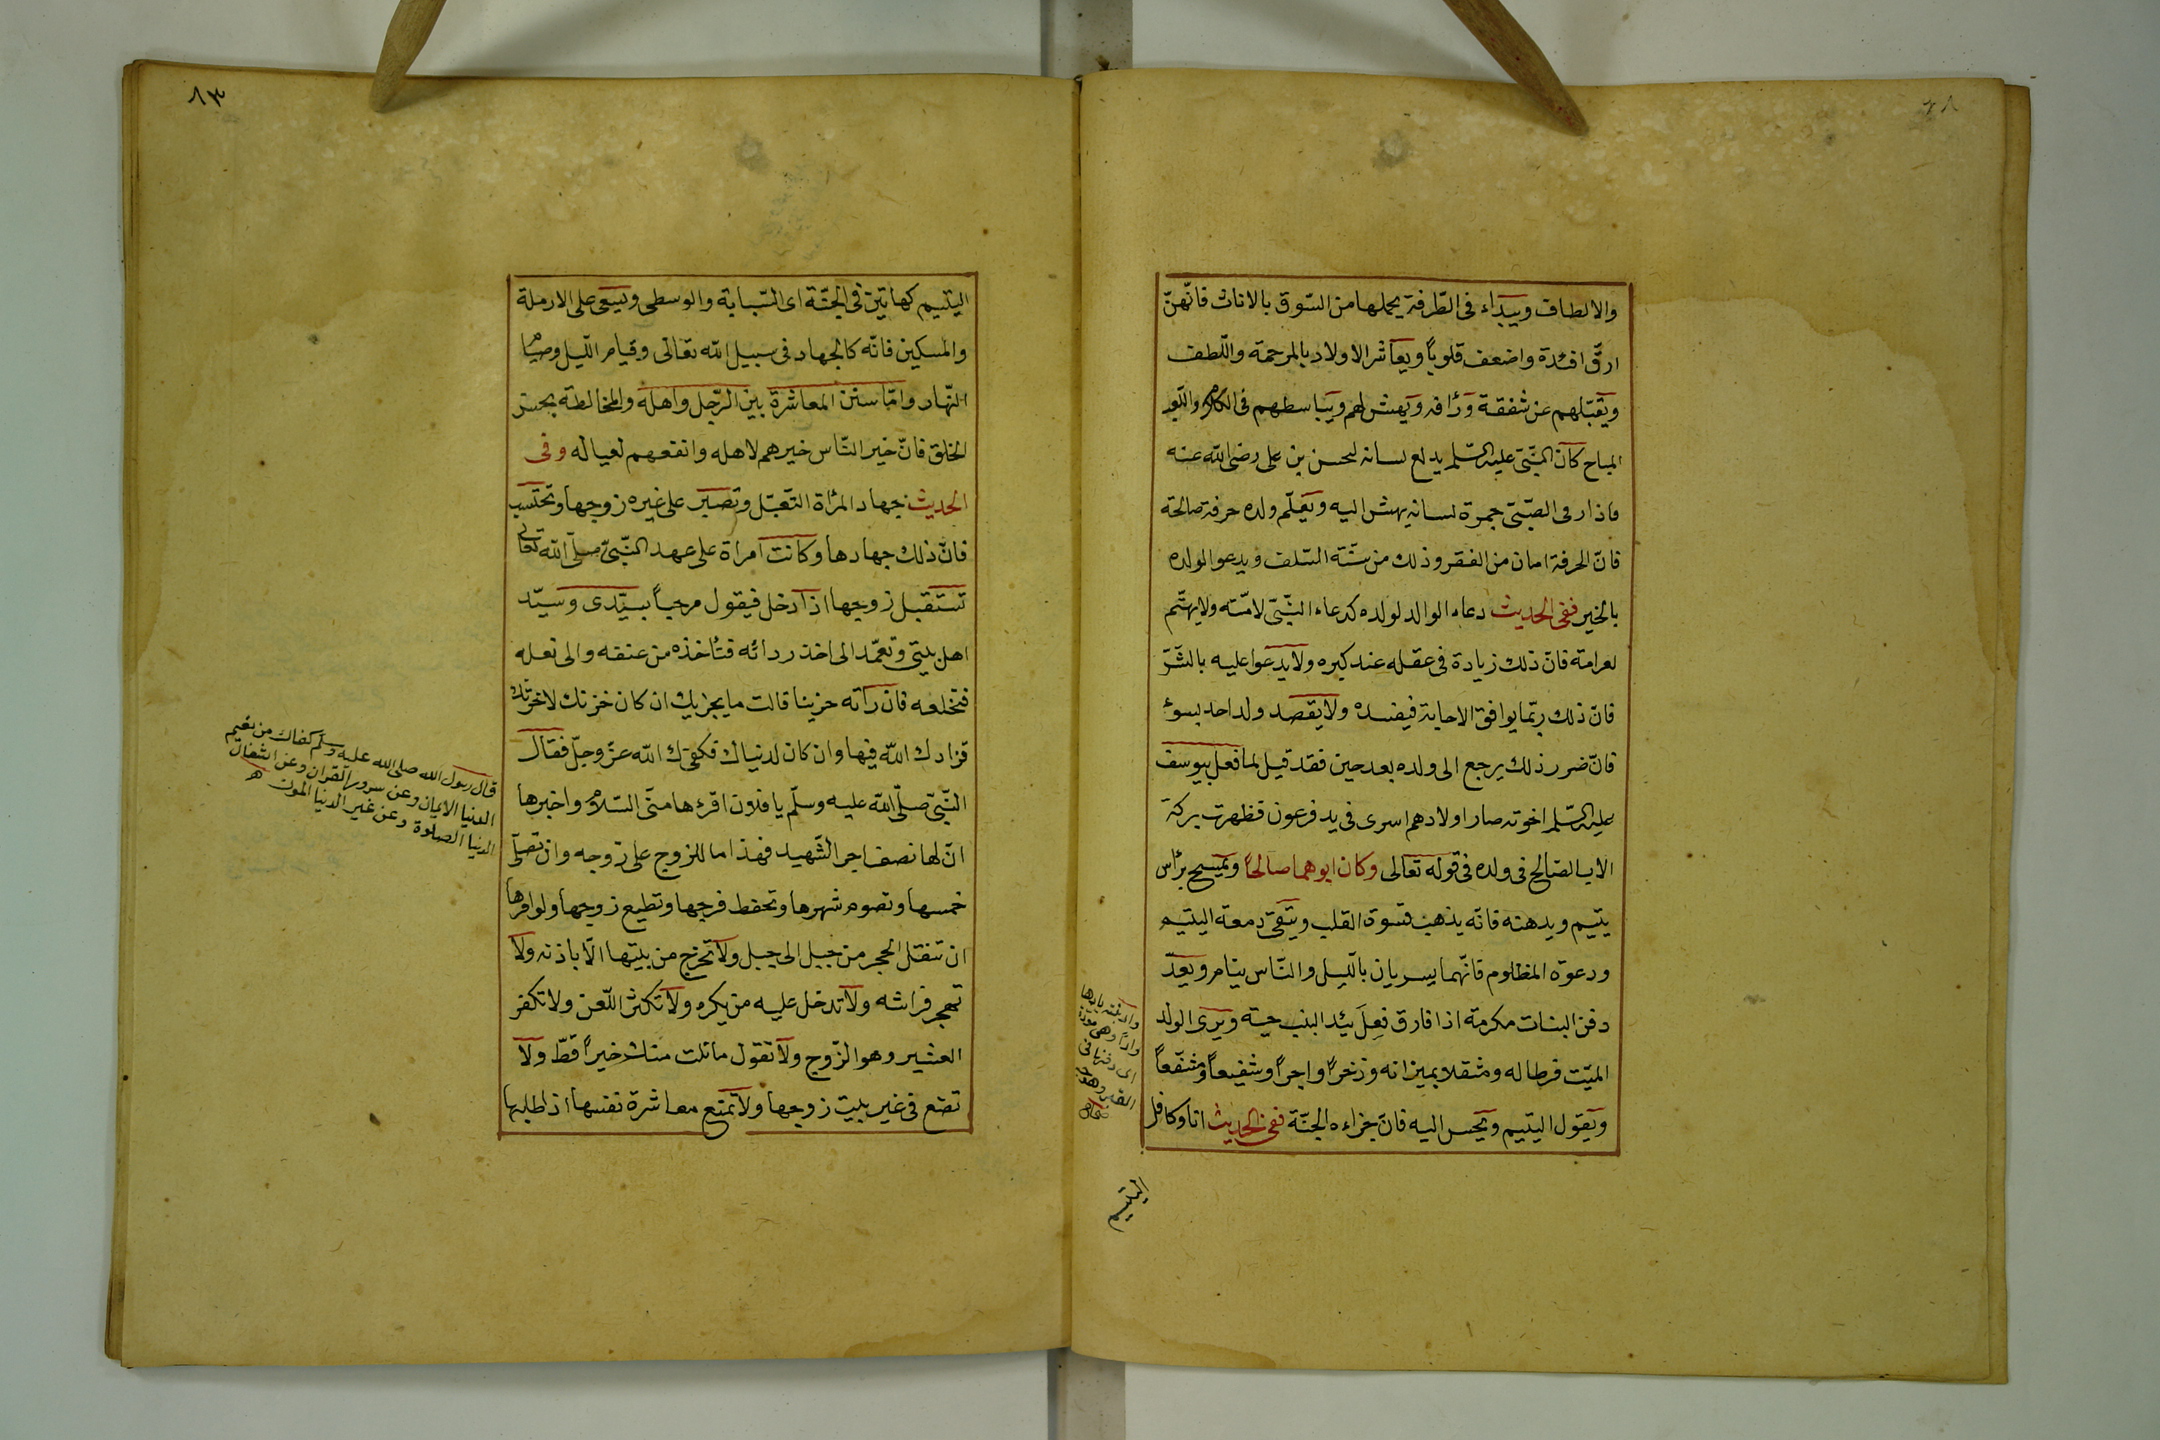 والالطاف ويبداء فى الطّرفة يحملها من السّوق بالاناث فانّهنّ
ارقّ افئدة واضعف قلوباً ويعاشر الاولاد بالمرحمة واللّطف
ويقبّلهم عن شفقة ورأفه ويهش لهم ويباسطهم فى الكلام
المباح كان النّبىّ عليه السّلم يدلع لسانه لحسن بن على رضى الله عنه
فاذا رءى الصّبىّ حمرة لسانه يهش اليه ويعلّم ولده حرفة صالحة
فانّ الحرفة امان من الفقر وذلك من سنّة السّلف ويدعوا لولده
بالخير ففى الحديث دعاء الوالد لولده كدعاء النّبىّ لامّته ولا يهتّم
لعرامته فانّ ذلك زيادة فى عقله عند كبره ولا يدعوا عليه بالشّرّ
فانّ ذلك ربّما يوافق الاجابة فيفسده ولا يقصد ولد احد بسوء
فانّ ضرر ذلك يرجع الى ولده بعد حين فقد قيل لما فعل بيوسف
عليه السّلم اخوته صار اولادهم اسرى فى يد فرعون فظهرت بركة
الاب الصّالح فى ولده فى قوله تعالى وكان ابوهما صالحاً ويمسح برأس
يتيم ويدهنه فانّه يذهب قسوة القلب ويتّقى دمعة اليتيم
ودعوة المظلوم فانّهما يسريان باللّيل والنّاس ينام ويعدّ
دفن البنات مكرمة اذا فارق فعل يئد البنت حيّة ويرى الولد
الميّت فرطا له ومثقلا بميزانه وذخراً واجراً وشفيعاً ومشفّعاً
ويقول اليتيم ويحسن اليه فانّ جزاءه الجنّة ففى الحديث انا وكافل
اليتيم
٨٣
اليتيم كهاتين فى الجنّة اى السّبابة والوسطى ويسعى على الارملة
والمسكين فانّه كالجهاد فى سبيل الله تعالى وقيام اللّيل وصيام
النّهار وامّا سنن المعاشرة بين الرّجل واهله والمخالطة بحسن
الخلق فانّ خير النّاس خيرهم لاهله وانفعهم لعياله وفى
الحديث جهاد المرأة التّبعّل وتصبر على غيره زوجها وتحتسب
فانّ ذلك جهادها وكانت امراة على عهد النّبىّ صلّى الله تعالى
تستقبل زوجها اذا دخل فيقول مرحباً بسيّدى وسيّد
اهل بيتى وتعمّد الى اخذ ردائه فتأخذه من عنقه والى نعله
فتخلعه فان رأته حزينا قالت ما يحزنك ان كان حزنك لاخرتك
فزادك الله فيها وان كان لدنياك فكفيك الله عزّ وجلّ فقال
النّبىّ صلّى الله عليه وسلّم يا فلان اقرءها منّى السّلام واخبرها
انّ لها نصف اجر الشّهيد فهذا ما للزوج على زوجه وان تصلّى
خمسها وتصوم شهرها وتحفظ فرجها وتطيع زوجها ولو امرها
ان تنقل الحجر من جبل الى جبل ولا تخرج من بيتها الّا باذنه ولا
تهجر فراشه ولا تدخل عليه من يكره ولا تكثر اللّعن ولا تكفر
العشير وهو الزّوج ولا تقول ما نلت منك خيراً قطّ ولا
تضع فى غير بليت زوجها ولا تمنع معاشرة نفسها اذ اطلبها
قال رسول الله صلى الله عليه وسلم كفاك من نعيم
الدنيا الايمان وعن سرورها القران وعن اشغال
الدنيا الصلوة وعن غير الدنيا الموت